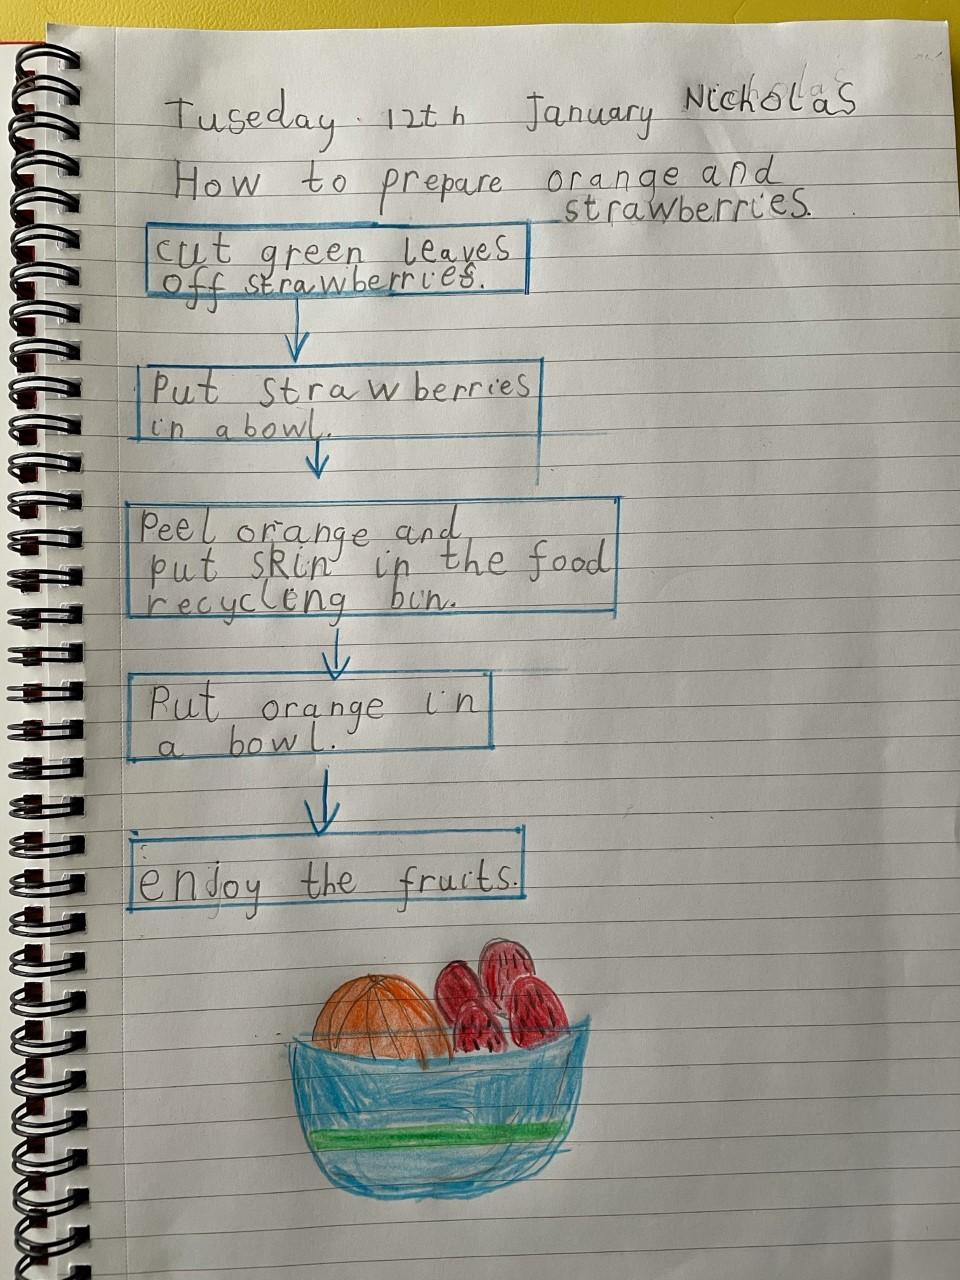 Tuseday 12th January Nicholas
How to prepare orange and
strawberries.
cut green leaves
off strawberries.
Put strawberries
in a bowl.
Peel orange and
put skin in the food
recycling bin.
Put orange in
a bowl.
enjoy the fruits.